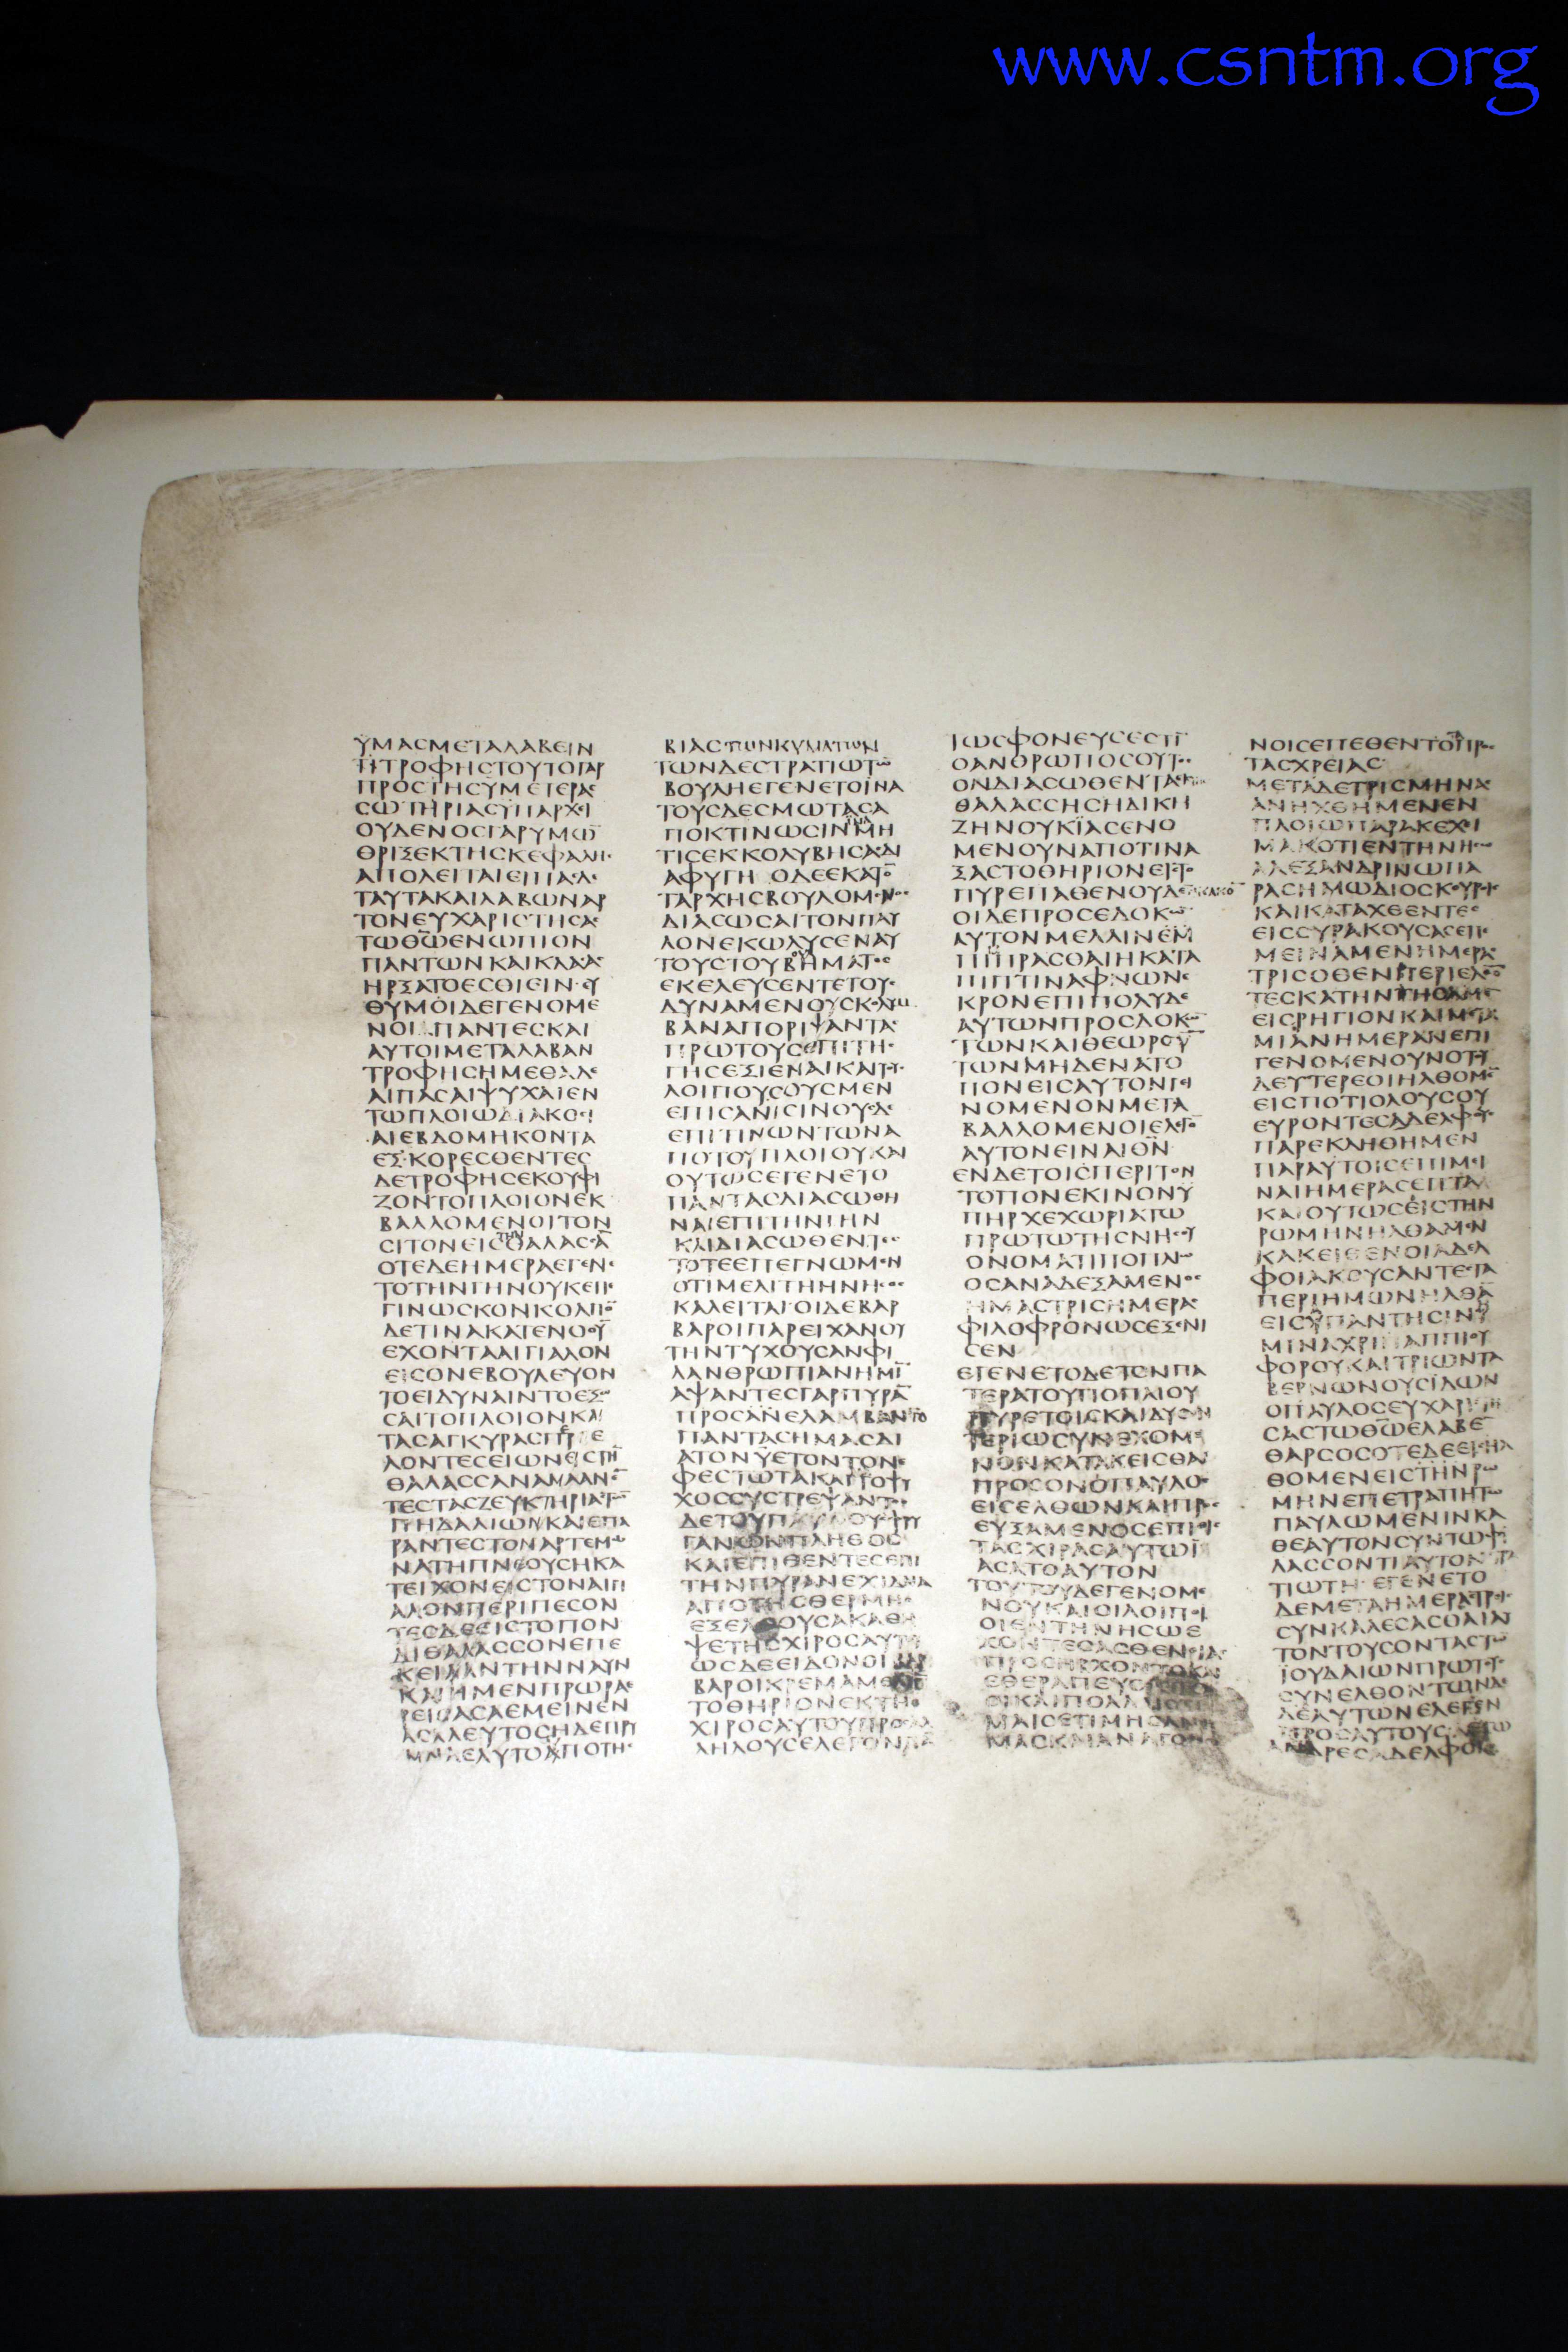 www.csntm.org
ΫΜΑСΜΕΤΑΛΑΒΕΙΝ
ΤΙΤΡΟΦΗСΤΟΥΤΟΓΑΡ
СΩΤΗΡΙΑСΫΠΑΡΧΕΙ
ΟΥΔΕΝΟСΓΑΡΥΜΩ̅
ΘΡΙΞΕΚΤΗСΚΕΦΑΛΗС
ΑΠΟΛΕΙΤΑΙΕΙΠΑС
ΤΑΥΤΑΚΑΙΛΑΒΩΝΑΡ
ΤΟΝΕΥΧΑΡΙСΤΗСΑС
ΤΩΘ̅Ω̅ΕΝΩΠΙΟΝ
ΠΑΝΤΩΝΚΑΙΚΛΑСΑС
ΗΡΞΑΤΟΕСΘΙΕΙΝΕΥ
ΘΥΜΟΙΔΕΓΕΝΟΜΕ
ΝΟΙΠΑΝΤΕСΚΑΙ
ΑΥΤΟΙΜΕΤΑΛΑΒΑΝ
ΤΡΟΦΗСΗΜΕΘΑΔΕ
ΑΙΠΑСΑΙΨΥΧΑΙΕΝ
ΤΩΠΛΟΙΩΔΙΑΚΟСΙ
ΑΙΕΒΔΟΜΗΚΟΝΤΑ
ΕΞΚΟΡΕСΘΕΝΤΕС
ΔΕΤΡΟΦΗСΕΚΟΥΦΙ
ΖΟΝΤΟΠΛΟΙΟΝΕΚ
ΒΑΛΛΟΜΕΝΟΙΤΟΝ
СΙΤΟΝΕΙСΤΗΝΘΑΛΑССΑ̅
ΟΤΕΔΕΗΜΕΡΑΕΓΕΝΕ
ΤΟΤΗΝΓΗΝΟΥΚΕΠΕ
ΓΙΝΩСΚΟΝΚΟΛΠΟ̅
ΔΕΤΙΝΑΚΑΤΕΝΟΟΥ̅
ΕΧΟΝΤΑΑΙΓΙΑΛΟΝ
ΕΙСΟΝΕΒΟΥΛΕΥΟΝ
ΤΟΕΙΔΥΝΑΙΝΤΟΕΞΩ
СΑΙΤΟΠΛΟΙΟΝΚΑΙ
ΤΑСΑΓΚΥΡΑСΠΕΡΙΕ
ΛΟΝΤΕСΕΙΩΝΕΙСΤΗ̅
ΤΕСΤΑСΖΕΥΚΤΗΡΙΑСΤΩ̅
ΠΗΔΑΛΙΩΝΚΑΙΕΠΑ
ΡΑΝΤΕСΤΟΝΑΡΤΕΜΩ
ΝΑΤΗΠΝΕΟΥСΗΚΑ
ΤΕΙΧΟΝΕΙСΤΟΝΑΙΓΙ
ΑΛΟΝΠΕΡΙΠΕСΟΝ
ΤΕСΔΕΕΙСΤΟΠΟΝ
ΔΙΘΑΛΑССΟΝΕΠΕ
ΚΕΙΛΑΝΤΗΝΝΑΥΝ
ΚΑΙΗΜΕΝΠΡΩΡΑΕ
ΡΕΙСΑСΑΕΜΕΙΝΕΝ
ΑСΑΛΕΥΤΟСΗΔΕΠΡΥ
ΜΝΑΕΛΥΤΟΑΠΟΤΗС
ΒΙΑСΤΩΝΚΥΜΑΤΩΝ
ΤΩΝΔΕСΤΡΑΤΙΩΤΩ̅
ΒΟΥΛΗΕΓΕΝΕΤΟΪΝΑ
ΤΟΥСΔΕСΜΩΤΑСΑ
ΠΟΚΤΙΝΩСΙΝΜΗ
ΤΙСΕΚΚΟΛΥΒΗСΑСΔΙ
ΑΦΥΓΗΟΔΕΕΚΑΤΟ̅
ΤΑΡΧΗСΒΟΥΛΟΜΕΝΟС
ΔΙΑСΩСΑΙΤΟΝΠΑΥ
ΛΟΝΕΚΩΛΥСΕΝΑΥ
ΤΟΥСΤΟΥΒΗΜΑΤΟС
ΕΚΕΛΕΥСΕΝΤΕΤΟΥС
ΔΥΝΑΜΕΝΟΥСΚΟΛΥΜ
ΒΑΝΑΠΟΡΙΨΑΝΤΑС
ΠΡΩΤΟΥСΕΠΙΤΗС
ΓΗСΕΞΙΕΝΑΙΚΑΙΤΟΥС
ΛΟΙΠΟΥСΟΥСΜΕΝ
ΕΠΙСΑΝΙСΙΝΟΥСΔΕ
ΕΠΙΤΙΝΩΝΤΩΝΑ
ΠΟΤΟΥΠΛΟΙΟΥΚΑΙ
ΟΥΤΩСΕΓΕΝΕΤΟ
ΠΑΝΤΑСΔΙΑСΩΘΗ
ΝΑΙΕΠΙΤΗΝΓΗΝ
ΚΑΙΔΙΑСΩΘΕΝΤΕС
ΤΟΤΕΕΠΕΓΝΩΜΕΝ
ΟΤΙΜΕΛΙΤΗΗΝΗСΟС
ΚΑΛΕΙΤΑΙΟΙΔΕΒΑΡ
ΒΑΡΟΙΠΑΡΕΙΧΑΝΟΥ
ΤΗΝΤΥΧΟΥСΑΝΦΙ
ΛΑΝΘΡΩΠΙΑΝΗΜΙ̅
ΑΨΑΝΤΕСΓΑΡΠΥΡΑ̅
ΠΡΟСΑΝΕΛΑΜΒΑΝΟ̅
ΠΑΝΤΑСΗΜΑСΔΙ
ΑΤΟΝΫΕΤΟΝΤΟΝΕ
ΦΕСΤΩΤΑΚΑΙΤΟΨΥ
ΧΟССΥСΤΡΕΨΑΝΤΟС
ΔΕΤΟΥΠΑΥΛΟΥΦΡΥ
ΓΑΝΩΝΠΛΗΘΟС
ΚΑΙΕΠΙΘΕΝΤΕСΕΠΙ
ΤΗΝΠΥΡΑΝΕΧΙΔΝΑ
ΑΠΟΤΗСΘΕΡΜΗС
ΕΞΕΛΘΟΥСΑΚΑΘΗ
ΨΕΤΗСΧΙΡΟСΑΥΤΟΥ
ΩСΔΕΕΙΔΟΝΟΙΒΑΡ
ΒΑΡΟΙΚΡΕΜΑΜΕΝΟ̅
ΤΟΘΗΡΙΟΝΕΚΤΗС
ΧΙΡΟСΑΥΤΟΥΠΡΟСΑΛ
ΛΗΛΟΥСΕΛΕΓΟΝΠΑ̅
ΤΩСΦΟΝΕΥСΕСΤΙ̅
ΟΑΝΘΡΩΠΟСΟΥΤΟС
ΟΝΔΙΑСΩΘΕΝΤΑΕΚΤΗС
ΘΑΛΑССΗСΗΔΙΚΗ
ΖΗΝΟΥΚΪΑСΕΝΟ
ΜΕΝΟΥΝΑΠΟΤΙΝΑ
ΞΑСΤΟΘΗΡΙΟΝΕΙСΤΟ
ΟΙΔΕΠΡΟСΕΔΟΚΩ̅
ΑΥΤΟΝΜΕΛΛΙΝΕΜ
ΠΙΠΡΑСΘΑΙΗΚΑΤΑ
ΠΙΠΤΙΝΑΦΝΩΝΕ
ΚΡΟΝΕΠΙΠΟΛΥΔΕ
ΑΥΤΩΝΠΡΟСΔΟΚΩ̅
ΤΩΝΚΑΙΘΕΩΡΟΥ̅
ΤΩΝΜΗΔΕΝΑΤΟ
ΠΟΝΕΙСΑΥΤΟΝΓΕΙ
ΝΟΜΕΝΟΝΜΕΤΑ
ΒΑΛΛΟΜΕΝΟΙΕΛΕΓΟ̅
ΑΥΤΟΝΕΙΝΑΙΘ̅Ν̅
ΕΝΔΕΤΟΙСΠΕΡΙΤΟΝ
ΤΟΠΟΝΕΚΙΝΟΝΥ
ΠΗΡΧΕΧΩΡΙΑΤΩ
ΠΡΩΤΩΤΗСΝΗСΟΥ
ΟΝΟΜΑΤΙΠΟΠΛΙΩ
ΟСΑΝΑΔΕΞΑΜΕΝΟС
ΗΜΑСΤΡΙСΗΜΕΡΑС
ΦΙΛΟΦΡΟΝΩСΕΞΕΝΙ
СΕΝ
ΕΓΕΝΕΤΟΔΕΤΟΝΠΑ
ΤΕΡΑΤΟΥΠΟΠΛΙΟΥ
ΠΥΡΕΤΟΙСΚΑΙΔΥСΕΝ
ΤΕΡΙΩСΥΝΕΧΟΜΕ
ΝΟΝΚΑΤΑΚΕΙСΘΑΙ
ΠΡΟСΟΝΟΠΑΥΛΟС
ΕΙСΕΛΘΩΝΚΑΙΠΡΟС
ΕΥΞΑΜΕΝΟСΕΠΙΘΕΙС
ΤΑСΧΙΡΑСΑΥΤΩΪ
ΑСΑΤΟΑΥΤΟΝ
ΤΟΥΤΟΥΔΕΓΕΝΟΜΕ
ΝΟΥΚΑΙΟΙΛΟΙΠΟΙ
ΟΙΕΝΤΗΝΗСΩΕ
ΧΟΝΤΕСΑСΘΕΝΙΑС
ΠΡΟСΗΡΧΟΝΤΟΚΑΙ
ΕΘΕΡΑΠΕΥΟΝΤΟ
ΟΙΚΑΙΠΟΛΛΑΙС
ΜΑΙСΕΤΙΜΗСΑΝ
ΜΑСΚΑΙΑΝΑΓΟΜΕ
ΝΟΙСΕΠΕΘΕΝΤΟΤΑΠΡΟС
ΤΑСΧΡΕΙΑС
ΜΕΤΑΔΕΤΡΙСΜΗΝΑС
ΑΝΗΧΘΗΜΕΝΕΝ
ΠΛΟΙΩΠΑΡΑΚΕΧΙ
ΜΑΚΟΤΙΕΝΤΗΝΗСΩ
ΑΛΕΞΑΝΔΡΙΝΩΠΑ
ΡΑСΗΜΩΔΙΟСΚΟΥΡΟΙС
ΚΑΙΚΑΤΑΧΘΕΝΤΕС
ΕΙССΥΡΑΚΟΥСΑСΕΠΕ
ΜΕΙΝΑΜΕΝΗΜΕΡΑС
ΤΡΙСΟΘΕΝΠΕΡΙΕΛΟ̅
ΕΙСΡΗΓΙΟΝΚΑΙΜΕΤΑ
ΜΙΑΝΗΜΕΡΑΝΕΠΙ
ΓΕΝΟΜΕΝΟΥΝΟΤΟΥ
ΔΕΥΤΕΡΕΟΙΗΛΘΟΜΕ̅
ΕΙСΠΟΤΙΟΛΟΥСΟΥ
ΕΥΡΟΝΤΕСΑΔΕΛΦΟΥС
ΠΑΡΕΚΛΗΘΗΜΕΝ
ΠΑΡΑΥΤΟΙСΕΠΙΜΕΙ
ΝΑΙΗΜΕΡΑСΕΠΤΑ
ΚΑΙΟΥΤΩСΕΙСΤΗΝ
ΡΩΜΗΝΗΛΘΑΜΕΝ
ΚΑΚΕΙΘΕΝΟΙΑΔΕΛ
ΦΟΙΑΚΟΥСΑΝΤΕСΤΑ
ΠΕΡΙΗΜΩΝΗΛΘΑ̅
ΕΙСΫΠΑΝΤΗСΙΝΗ
ΜΙΝΑΧΡΙΑΠΠΙΟΥ
ΦΟΡΟΥΚΑΙΤΡΙΩΝΤΑ
ΒΕΡΝΩΝΟΥСΙΔΩΝ
ΟΠΑΥΛΟСΕΥΧΑΡΙСΤΗ
СΑСΤΩΘ̅Ω̅ΕΛΑΒΕ̅
ΘΑΡСΟСΟΤΕΔΕΕΙСΗΛ
ΘΟΜΕΝΕΙСΤΗΝΡΩ
ΜΗΝΕΠΕΤΡΑΠΗΤΩ
ΠΑΥΛΩΜΕΝΙΝΚΑ
ΘΕΑΥΤΟΝСΥΝΤΩΦΥ
ΛΑССΟΝΤΙΑΥΤΟΝСΤΡΑ
ΤΙΩΤΗΕΓΕΝΕΤΟ
ΔΕΜΕΤΑΗΜΕΡΑСΤΡΕΙС
СΥΝΚΑΛΕСΑСΘΑΙΑΥ
ΤΟΝΤΟΥСΟΝΤΑСΤΩ̅
ΪΟΥΔΑΙΩΝΠΡΩΤΟΥС
СΥΝΕΛΘΟΝΤΩΝ
ΔΕΑΥΤΩΝΕΛΕΓΕΝ
ΠΡΟСΑΥΤΟΥСΕΓΩ
ΑΝΔΡΕСΑΔΕΛΦΟΙ